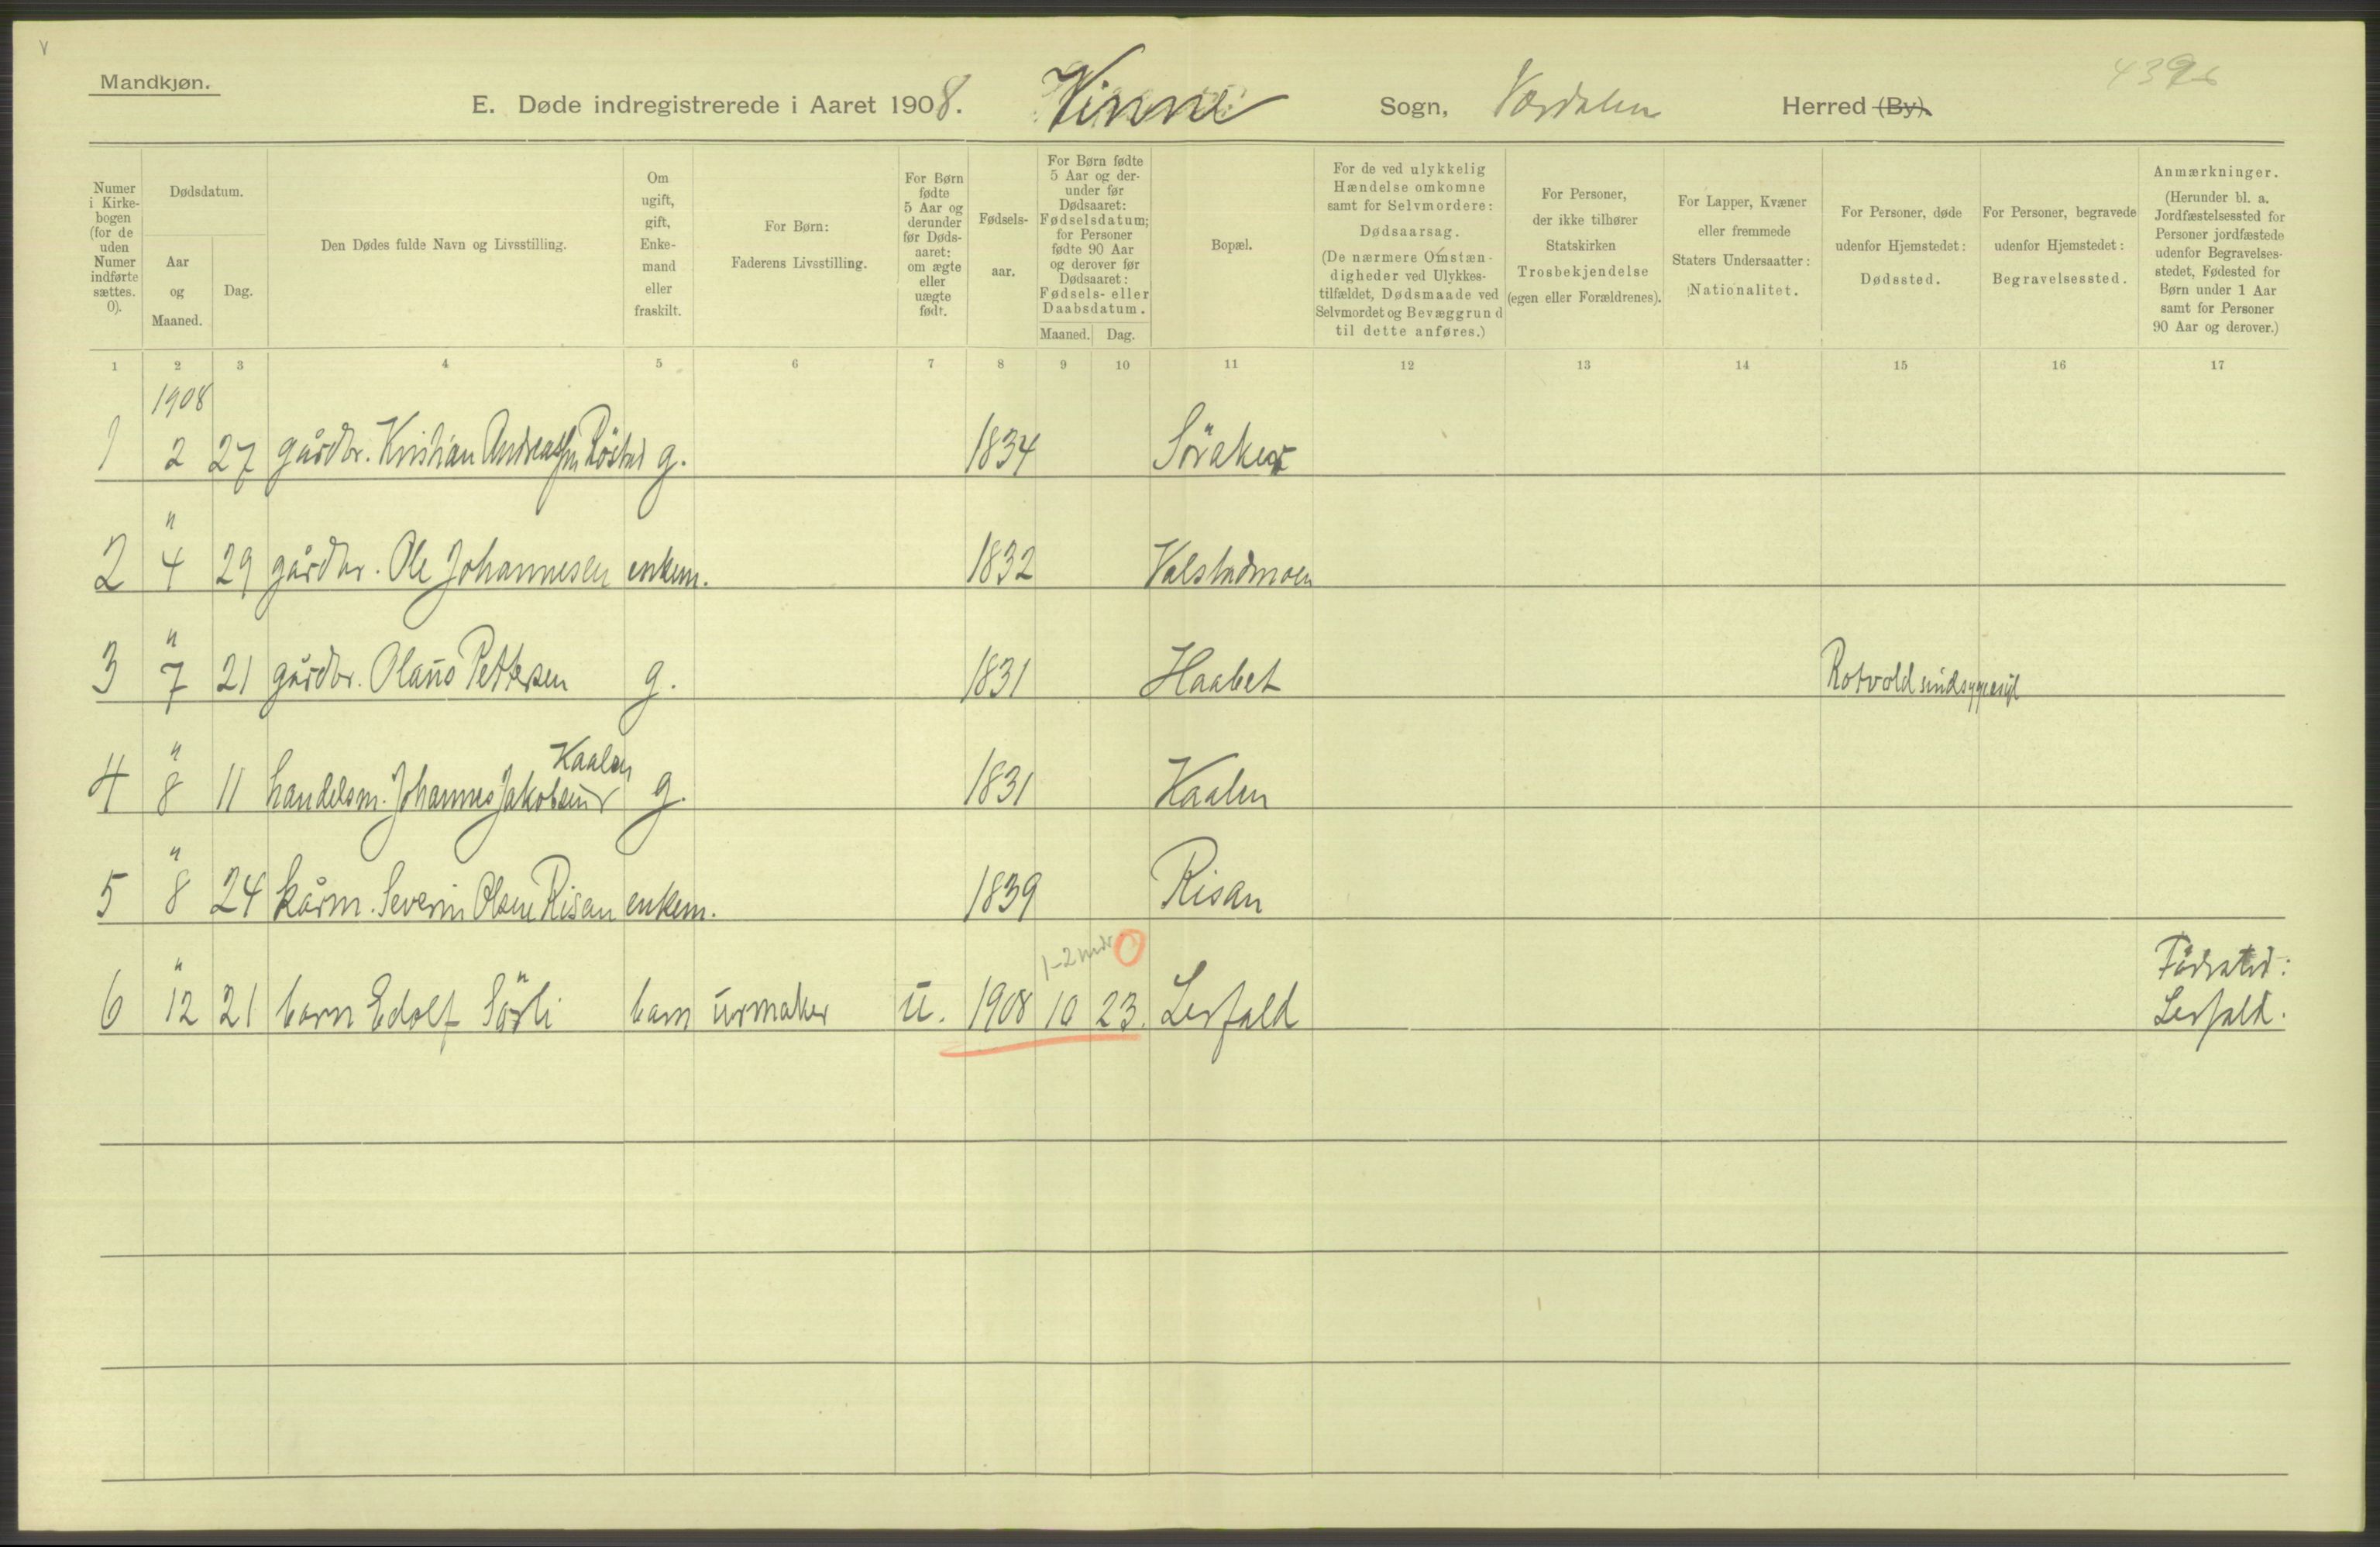 Mandkjøn.
E. Døde indregistrerede i Aaret 1908. Vinne Sogn, Værdalen Herred (By).
Numer i Kirkebogen (for de uden Numer indførte sættes. 0).
Dødsdatum.
Aar og Maaned.
Dag.
Den Dødes fulde Navn og Livsstilling.
Om ugift, gift, Enkemand eller fraskilt.
For Børn: Faderens Livsstilling.
For Børn fødte 5 Aar og derunder før Dødsaaret: om ægte eller uægte født.
Fødselsaar.
For Børn fødte 5 Aar og derunder før Dødsaaret: Fødselsdatum; for Personer fødte 90 Aar og derover før Dødsaaret: Fødsels- eller Daabsdatum.
Maaned. Dag.
Bopæl.
For de ved ulykkelig Hændelse omkomne samt for Selvmordere: Dødsaarsag. (De nærmere Omstændigheder ved Ulykkestilfældet, Dødsmaade ved Selvmordet og Bevæggrund til dette anføres.)
For Personer, der ikke tilhører Statskirken Trosbekjendelse (egen eller Forældrenes).
For Lapper, Kvæner eller fremmede Staters Undersaatter: Nationalitet.
For Personer, døde udenfor Hjemstedet: Dødssted.
For Personer, begravede udenfor Hjemstedet: Begravelsessted.
Anmærkninger. (Herunder bl. a. Jordfæstelsessted for Personer jordfæstede udenfor Begravelsesstedet, Fødested for Børn under 1 Aar samt for Personer 90 Aar og derover.)
1 2 3 4 5 6 7 8 9 10 11 12 13 14 15 16 17
1908
1 2 27 gårdbr. Kristian Andreassen Röstad g. 1834 Söraker
2 " 4 29 gårdbr. Ole Johannesen enkem. 1832 Valstadmoen
3 " 7 21 gårdbr. Olaus Pettersen g. 1831 Haabet Rotvold sindsygeasyl
Kaalen
4 " 8 11 handelsm. Johannes Jakobsen g. 1831 Kaalen
5 " 8 24 kårm. Severin Olsen Risan enkem. 1839 Risan
1-2 mdr 0
6 " 12 21 barn Edolf Sörli barn urmaker u. 1908 10 23. Lerfald Födested:
Lerfald.